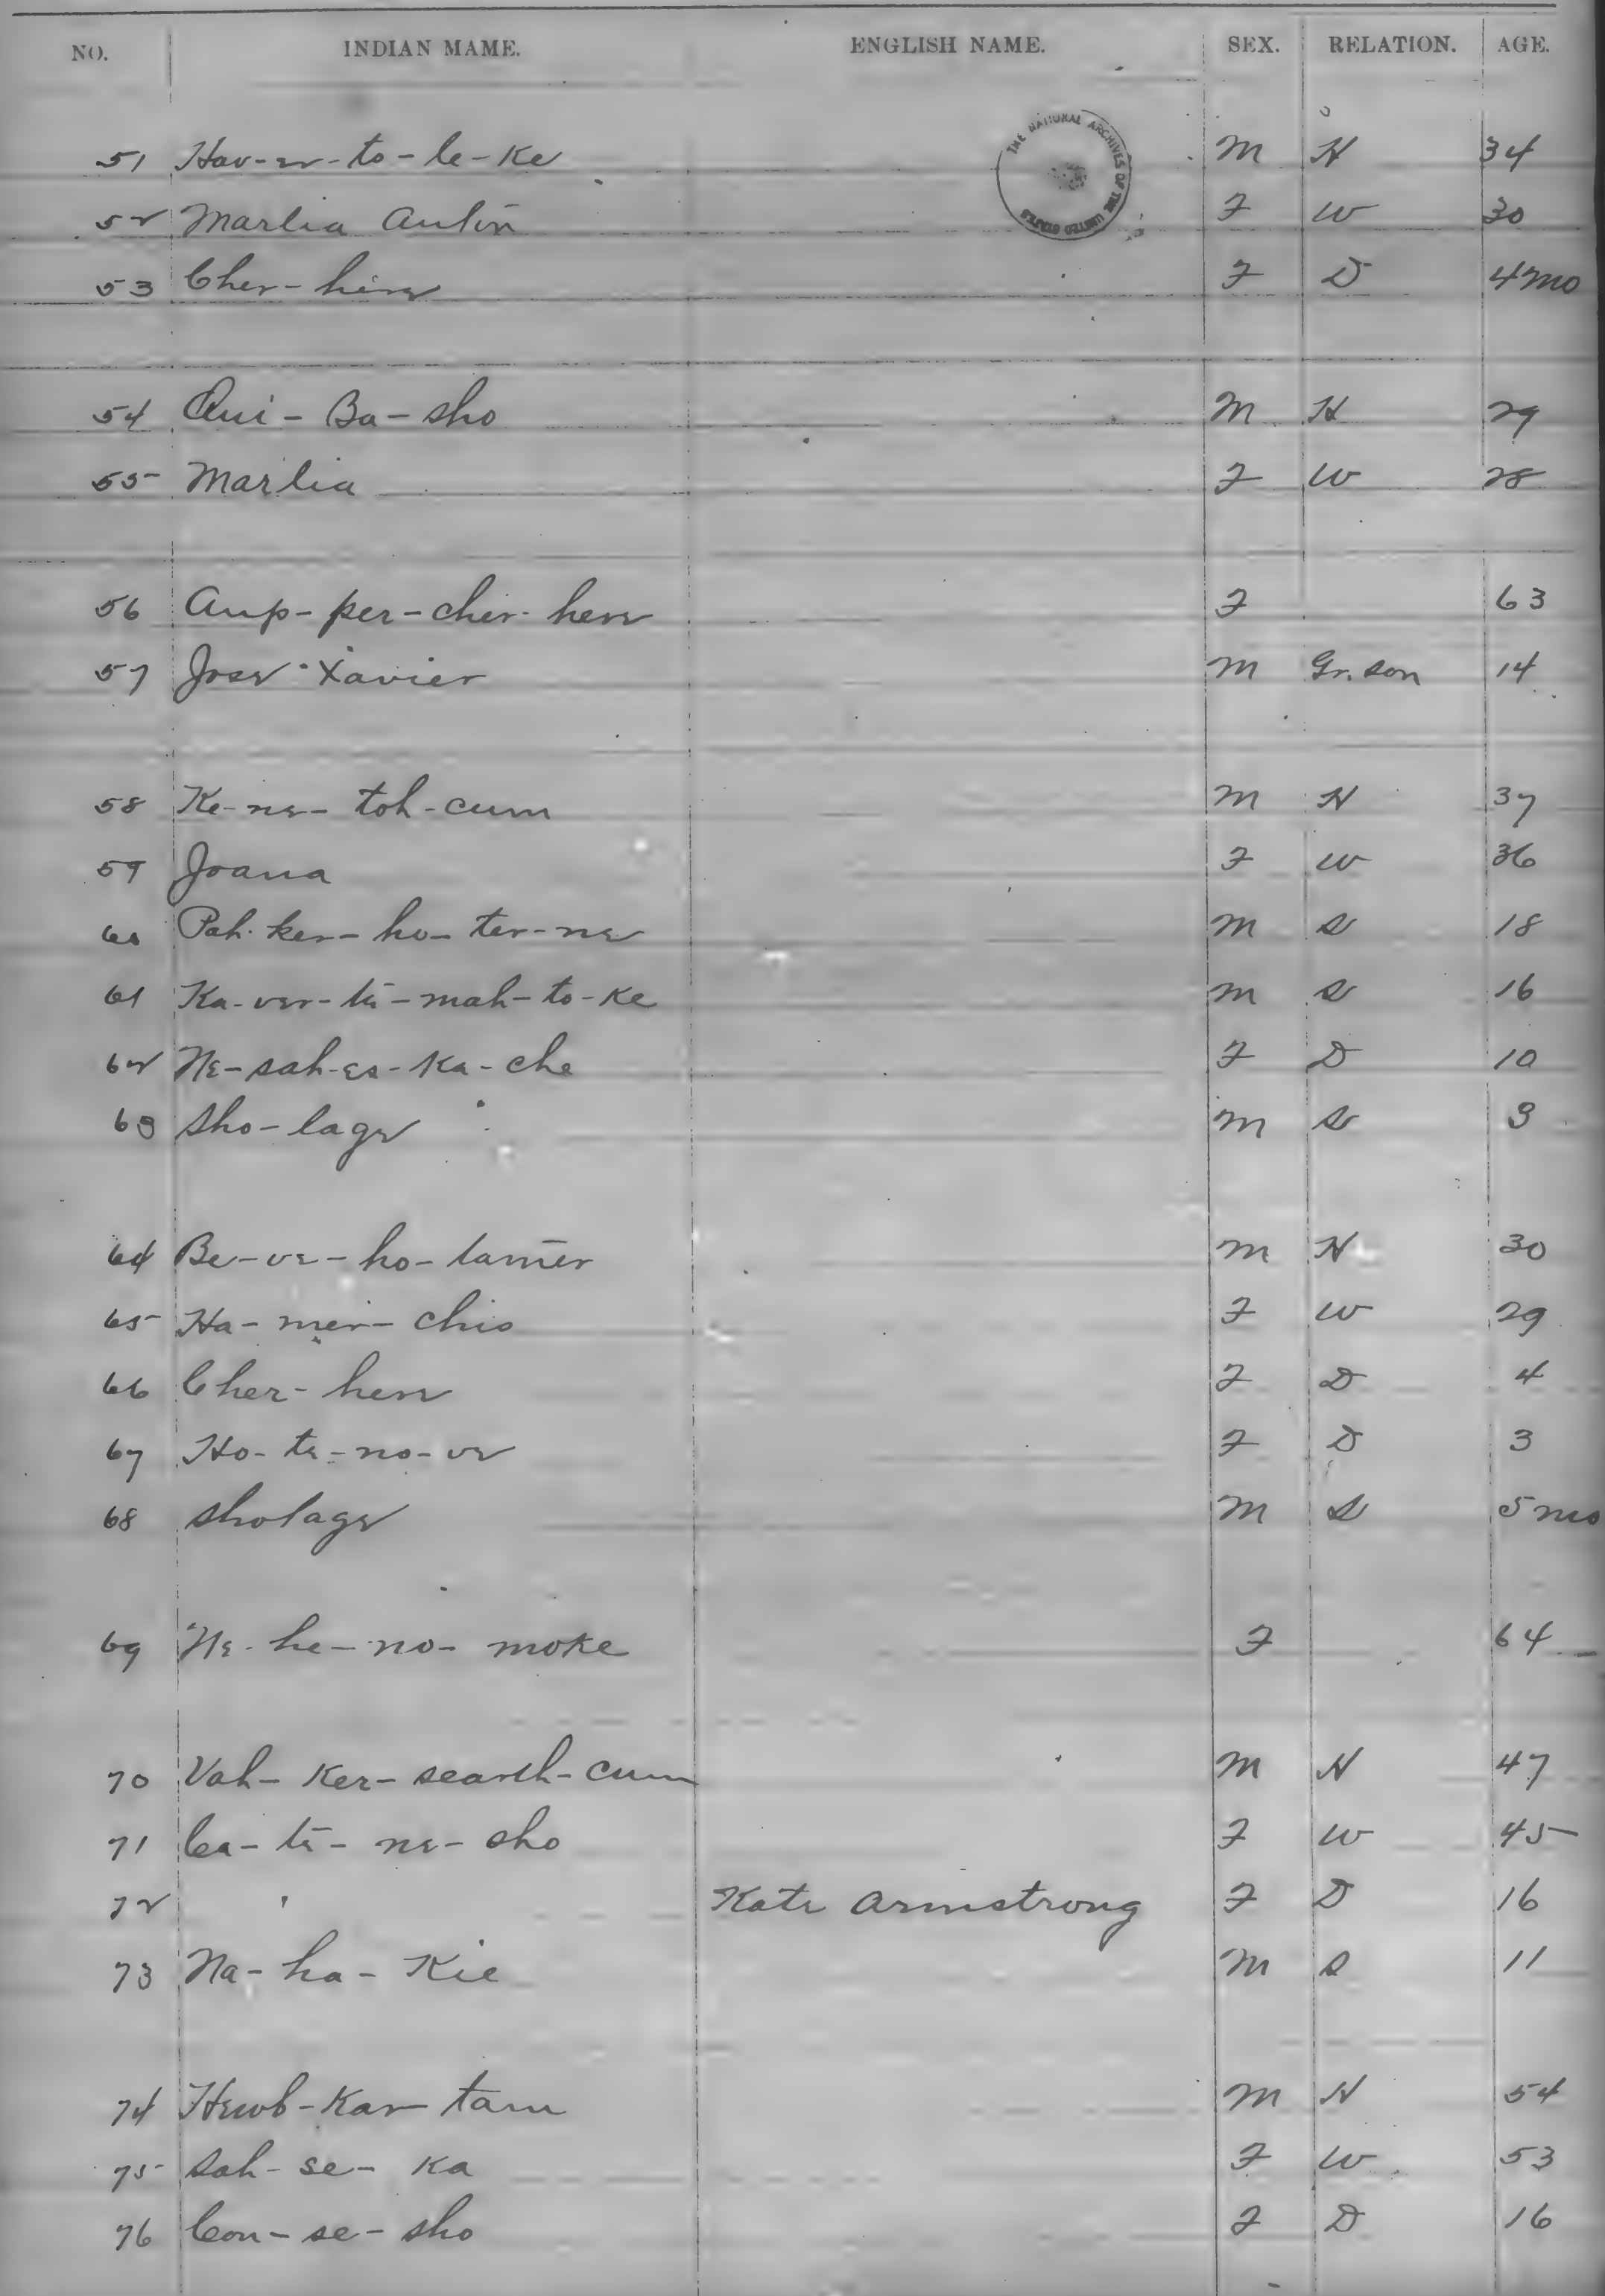 NO. INDIAN MAME. ENGLISH NAME. SEX. RELATION. AGE.
THE NATIONAL ARCHIVES OF THE UNITED STATES
51 Hav-er-to-le-Ke M H 34
52 Marlia Anton F W 30
53 Cher-hene F D 4mo
54 Qui-Ba-sho M H 29
55 Marlia F W 28
56 Aup-per-cher-hene F 63
57 Jose Xavier M Gr. son 14
58 Ke-ne-toh-cum M H 37
59 Joana F W 36
60 Pah-ker-ho-ter-ne M S 18
61 Ka-ver-te-mah-to-Ke M S 16
62 Ne-sah-es-Ka-che F D 10
63 Sho-lage M S 3
64 Be-ve-ho-tamer M H 30
65 Ha-mer-chio F W 29
66 Cher-hene F D 4
67 Ho-te-no-ve F D 3
68 Sholage M S 5mo
69 Ne-he-no-moke F 64
70 Vah-Ker-search-cum M H 47
71 Ca-te-ne-sho F W 45
72 Kate Armstrong F D 16
73 Na-ha-Kie M S 11
74 Hewb-Kar-tam M H 54
75 Sah-se-Ka F W 53
76 Con-se-sho F D 16